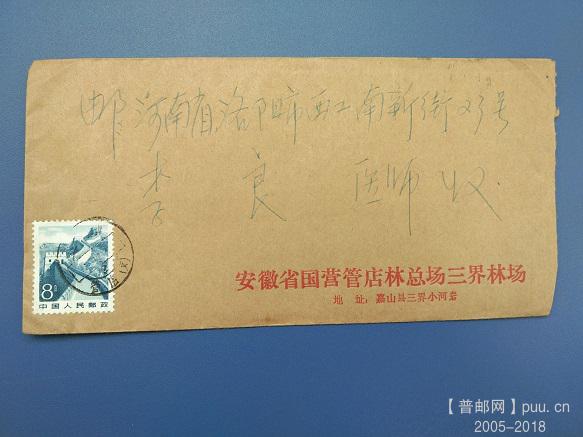 邮 河南省洛阳市西工南新街23号
李良 医师 收
8分
中国人民邮政
安徽省国营管店林总场三界林场
地址：嘉山县三界小河岩
【普邮网】puu.cn
2005-2018